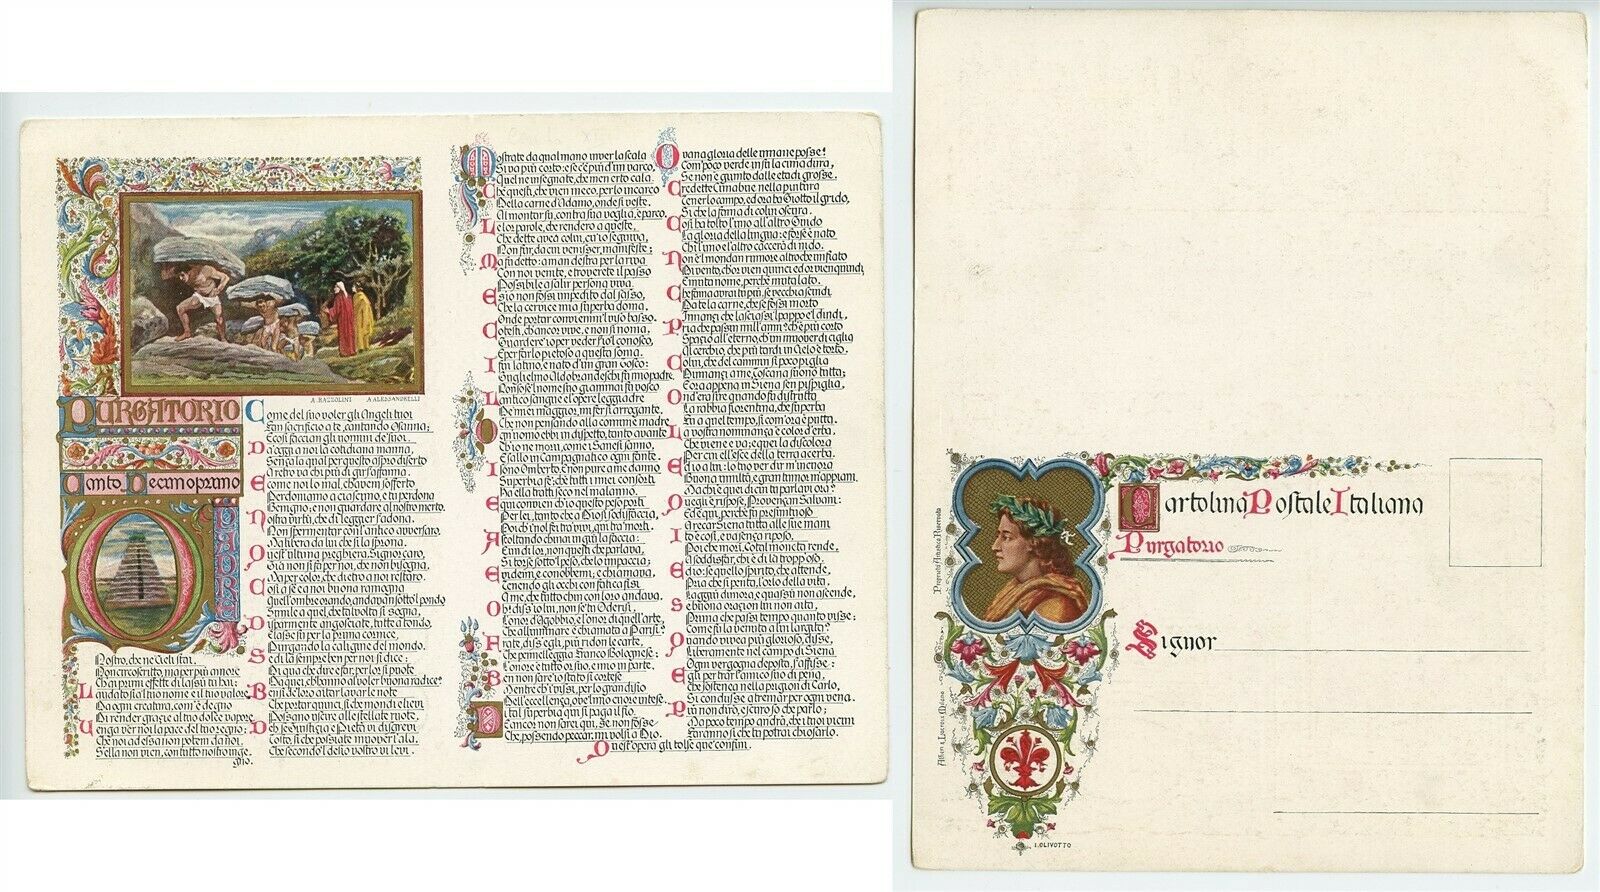 A. RAZZOLINI
A. ALESSANDRELLI
PURGATORIO
Canto Decimoprimo
O PADRE
Nostro, che ne' Cieli stai,
Non circoscritto, ma per più amore
Ch'ai primi effetti di lassù tu hai:
Laudato sia 'l tuo nome e il tuo valore
Da ogni creatura, com'è degno
Di render grazie al tuo dolce vapore.
Venga ver noi la pace del tuo regno;
Chè noi ad essa non potem da noi,
S'ella non vien, con tutto nostro inge
gno.
Come del suo voler gli Angeli tuoi
Fan sacrificio a te, cantando Osanna;
Così faccian gli uomini de' suoi.
Dà oggi a noi la cotidiana manna,
Senza la qual per questo aspro diserto
A retro va chi più di gir s'affanna.
E come noi lo mal, ch'avem sofferto
Perdoniamo a ciascuno, e tu perdona
Benigno; e non guardare al nostro merto.
Nostra virtù, che di leggier s'adona,
Non spermentar con l'antico avversaro,
Ma libera da lui, che sì la sprona.
Quest'ultima preghiera, Signor caro,
Già non si fa per noi, chè non bisogna,
Ma per color, che dietro a noi restaro.
Così a sè e a noi buona ramogna
Quell'ombre orando, andavan sotto l pondo
Simile a quel, che talvolta si sogna,
Disparmente angosciate, tutte a tondo,
E lasse su per la prima cornice,
Purgando la caligine del mondo.
Se di là sempre ben per noi si dice;
Di qua che dire e far, per lor si puote
Da quei, c'hanno al voler buona radice?
Ben si dè loro aitar lavar le note
Che portar quinci, sì che mondi e lievi
Possano uscire alle stellate ruote,
Deh se Giustizia e Pietà vi disgrevi
Tosto, sì che possiate muover l'ala,
Che secondo 'l desio vostro vi levi.
Mostrate da qual mano inver la scala
Si va più corto: e se c'è più d'un varco,
Quel ne insegnate, che men erto cala:
Chè questi, che vien meco, per lo incarco
Della carne d'Adamo, onde si veste,
Al montar su, contra sua voglia, è parco.
Le lor parole, che rendero a queste,
Che dette avea colui, cu' io seguiva,
Non fur, da cui venisser, manifeste;
Ma fu detto: a man destra per la riva
Con noi venite, e troverete il passo
Possibile a salir persona viva.
E s'io non fossi impedito dal sasso,
Che la cervice mia superba doma,
Onde portar convienmi 'l viso basso.
Cotesti, ch'ancor vive, e non si noma,
Guardere' io per veder s'io 'l conosco,
E per farlo pietoso a questa soma.
I' fui latino, e nato d'un gran Tosco:
Guglielmo Aldobrandeschi fu mio padre,
Non so se 'l nome suo giammai fu vosco.
L'antico sangue e l'opere leggiadre
De' miei maggior, mi fer sì arrogante,
Che non pensando alla comune madre,
Ogni uomo ebbi in dispetto, tanto avante
Ch'io ne morii, come i Sanesi sanno,
E sallo in Campagnatico ogni fante.
Io sono Omberto; e non pure a me danno
Superbia fe', chè tutti i miei consorti
Ha ella tratti seco nel malanno.
E qui convien ch'io questo peso porti
Per lei, tanto che a Dio si soddisfaccia,
Poi ch'i' nol fei tra' vivi, qui tra' morti.
Ascoltando chinai in giù la faccia:
E un di lor, non questi che parlava,
Si torse sotto 'l peso, che lo impaccia;
E videmi e conobbemi; e chiamava,
Tenendo gli occhi con fatica fisi
A me, che tutto chin con loro andava.
Oh! diss'io lui, non se' tu Oderisi,
L'onor d'Agobbio, e l'onor di quell'arte,
Che alluminare è chiamata a Parisi?
Frate, diss'egli, più ridon le carte,
Che pennelleggia Franco Bolognese:
L'onore è tutto or suo, e mio in parte.
Ben non sare' io stato sì cortese
Mentre ch'i' vissi, per lo gran disio
Dell'eccellenza, ove mio cuore intese.
Di tal superbia qui si paga il fio.
Ed ancor non sarei qui, se non fosse
Che, possendo peccar, mi volsi a Dio.
O vana gloria delle umane posse!
Com' poco verde in su la cima dura,
Se non è giunto dalle etadi grosse.
Credette Cimabue nella pintura
Tener lo campo, ed ora ha Giotto il grido,
Sì che la fama di colui oscura.
Così ha tolto l'uno all'altro Guido
La gloria della lingua: e forse è nato
Chi l'uno e l'altro caccerà di nido.
Non è 'l mondan rumore altro che un fiato
Di vento, ch'or vien quinci ed or vien quindi,
E muta nome, perchè muta lato.
Che fama avrai tu più, se vecchia scindi
Da te la carne, che se fossi morto
Innanzi che lasciassi 'l pappo e 'l dindi,
Pria che passin mill'anni? ch'è più corto
Spazio all'eterno, ch'un muover di ciglia
Al cerchio, che più tardi in Cielo è torto.
Colui, che del cammin sì poco piglia
Dinanzi a me, Toscana sonò tutta;
Ed ora appena in Siena sen pispiglia,
Ond'era sire quando fu distrutta
La rabbia fiorentina, che superba
Fu a quel tempo, sì com'ora è putta.
La vostra nominanza è color d'erba,
Che viene e va; e quei la discolora
Per cui ell'esce della terra acerba.
Ed io a lui: lo tuo ver dir m'incuora
Buona umiltà, e gran tumor m'appiani,
Ma chi è quei di cui tu parlavi ora?
Quegli è, rispose, Provenzan Salvani;
Ed è qui, perchè fu presuntuoso
A recar Siena tutta alle sue mani.
Ito è così, e va senza riposo,
Poi che morì. Cotal moneta rende,
A soddisfar, chi è di là tropp'oso.
Ed io: se quello spirito, che attende,
Pria che si penta, l'orlo della vita,
Laggiù dimora, e quassù non ascende,
Se buona orazion lui non aita,
Prima che passi tempo quanto visse;
Come fu la venuta a lui largita?
Quando vivea più glorioso, disse,
Liberamente nel campo di Siena
Ogni vergogna deposta, s'affisse:
E gli per trar l'amico suo di pena,
Che sostenea nella prigion di Carlo,
Si condusse a tremar per ogni vena.
Più non dirò, e scuro so che parlo;
Ma poco tempo andrà, che i tuoi vicini
Faranno sì che tu potrai chiosarlo.
Quest'opera gli tolse que' confini.
Cartolina Postale Italiana
Purgatorio
Signor
Proprietà Artistica Riservata
Alfieri & Lacroix Milano
I. OLIVOTTO